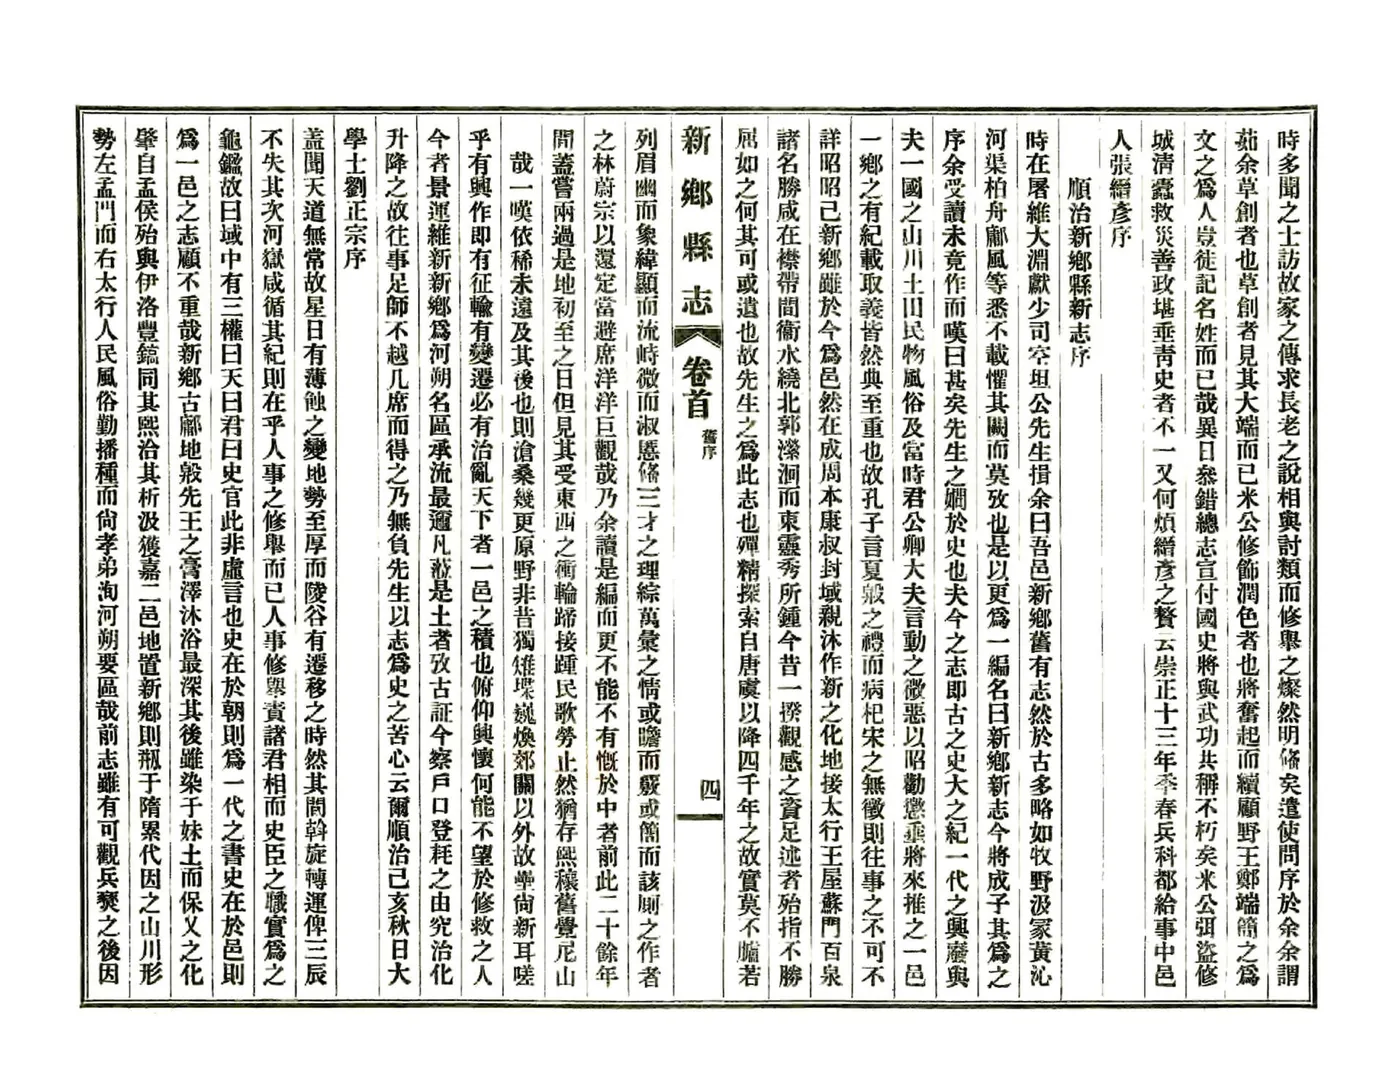 時多聞之士訪故家之傳求長老之說相與討類而修舉之燦然明備矣遣使問序於余余謂
茹余草創者也草創者見其大端而已米公修飾潤色者也將奮起而續顧野王鄭端簡之爲
文之爲人豈徒記名姓而已哉異日叅錯總志宣付國史將與武功共稱不朽矣米公弭盜修
城清蠹救災善政堪垂靑史者不一又何煩縉彥之贅云崇正十三年季春兵科都給事中邑
人張縉彥序
順治新鄉縣新志序
時在屠維大淵獻少司空坦公先生揖余曰吾邑新鄉舊有志然於古多略如牧野汲冢黃沁
河渠柏舟鄘風等悉不載懼其闕而莫攷也是以更爲一編名曰新鄉新志今將成子其爲之
序余受讀未竟作而嘆曰甚矣先生之嫺於史也夫今之志即古之史大之紀一代之興廢與
夫一國之山川土田民物風俗及當時君公卿大夫言動之微惡以昭勸懲垂將來推之一邑
一鄉之有紀載取義皆然典至重也故孔子言夏殷之禮而病杞宋之無徵則往事之不可不
詳昭昭已新鄉雖於今爲邑然在成周本康叔封域親沐作新之化地接太行王屋蘇門百泉
諸名勝咸在襟帶間衞水繞北郭瀠洄而東靈秀所鍾今昔一揆觀感之資足述者殆指不勝
屈如之何其可或遺也故先生之爲此志也殫精探索自唐虞以降四千年之故實莫不臚若
新鄉縣志 卷首 舊序 四
列眉幽而象緯顯而流峙微而淑慝備三才之理綜萬彙之情或瞻而覈或簡而該厠之作者
之林蔚宗以還定當避席洋洋巨觀哉乃余讀是編而更不能不有慨於中者前此二十餘年
間蓋嘗兩過是地初至之日但見其受東西之衝輪蹄接踵民歌勞止然猶存熙穰舊覺尼山
哉一嘆依稀未遠及其後也則滄桑幾更原野非昔獨雉堞巍煥郊關以外故壘尙新耳嗟
乎有興作即有征輸有變遷必有治亂天下者一邑之積也俯仰興懷何能不望於修救之人
今者景運維新新鄉爲河朔名區承流最邇凡蒞是土者攷古証今察戶口登耗之由究治化
升降之故往事足師不越几席而得之乃無負先生以志爲史之苦心云爾順治己亥秋日大
學士劉正宗序
盖聞天道無常故星日有薄蝕之變地勢至厚而陵谷有遷移之時然其間斡旋轉運俾三辰
不失其次河嶽咸循其紀則在乎人事之修舉而已人事修舉責諸君相而史臣之職實爲之
龜鑑故曰域中有三權曰天曰君曰史官此非虛言也史在於朝則爲一代之書史在於邑則
爲一邑之志顧不重哉新鄉古鄘地殷先王之膏澤沐浴最深其後雖染于妹土而保乂之化
肇自孟侯殆與伊洛豐鎬同其熙洽其析汲獲嘉二邑地置新鄉則瓶于隋累代因之山川形
勢左孟門而右太行人民風俗勤播種而尙孝弟洵河朔要區哉前志雖有可觀兵燹之後因